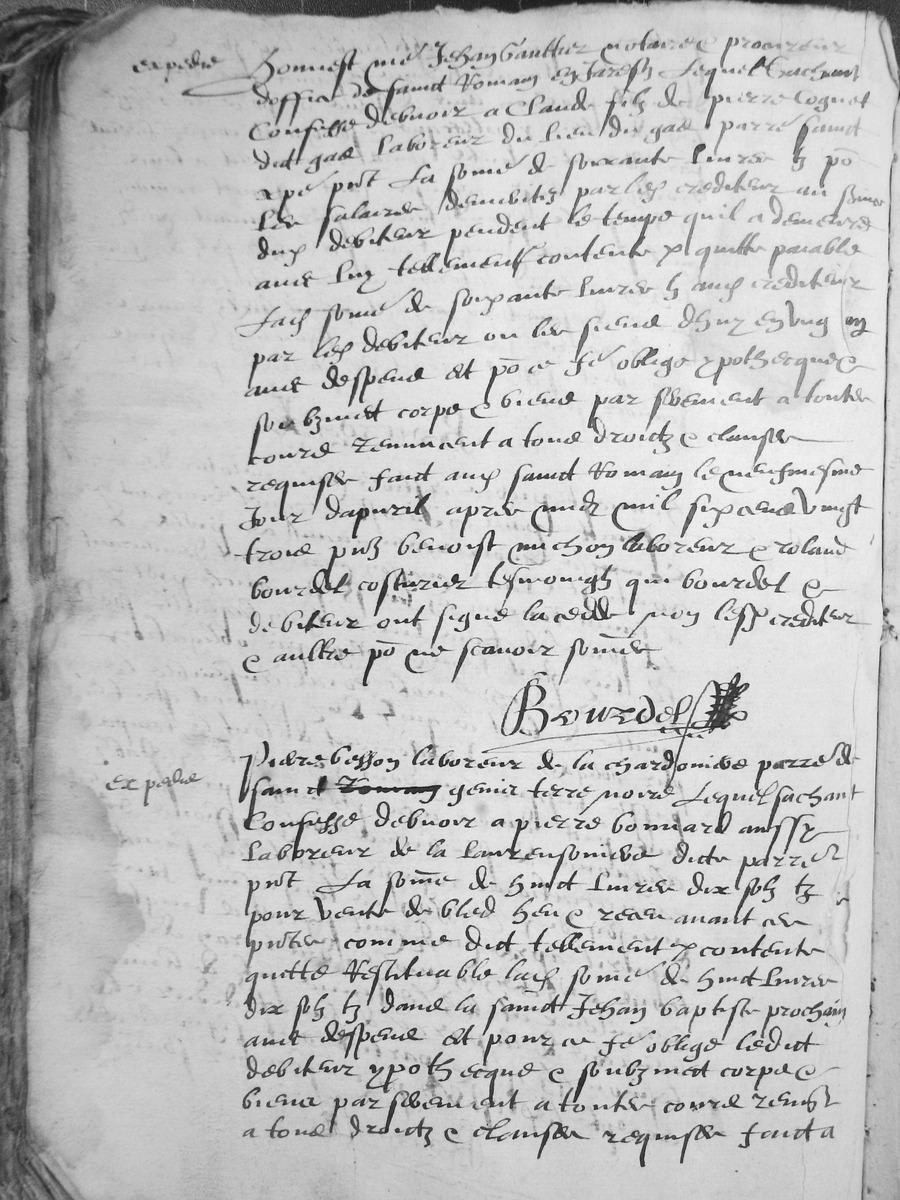 expedie
Honnest me Jehan Gaultier notaire & procureur
doffice de sainct Romain en Jarestz Lequel Sachant
Confesse debvoir a Claude filz de pierre Coignet
dict gas laboreur du lieu du gas parre sainct
prnt La some de soixante livres tz po
les salaires par les crediteur au
debiteur pendent le temps quil a demeuré
avec luy tellement contente quitte paiable
Lad some de soixante livres tz aud crediteur
par led debiteur ou les siens dhuy en ung an
avec despens et po ce se oblige ypothecque &
soubzmect corps & biens par serement a toutes
cours renuncent a tous droictz & clauses
requises faict aud sainct Romain le neufviesme
Jour dapvril apres midy mil six cens vingt
trois pntz benoist michon laboreur & roland
bourdel costurier tesmoingtz qui bourdel &
debiteur ont signe la cedde non lesd crediteur
& aultre po ne scavoir sommes
Bourdel
expedie
Pierre besson laboreur de la chardoniere parre de
sainct Romain genis terre noire Lequel sachant
Confesse debvoir a pierre bonnard aussy
Laboreur de la Laurensoniere dicte parre
prnt La some de huict livres dix solz tz
pour vente de bled heu & receu avant ces
pntes comme dict tellement contente
quitte Restituable lad some de huict livres
dix solz tz dans la sainct Jehan baptiste prochain
avec despens et pour ce se oblige ledict
debiteur ypothecque & soubzmect corps &
biens par serement a toutes cours
a tous droictz & clauses requises faict a